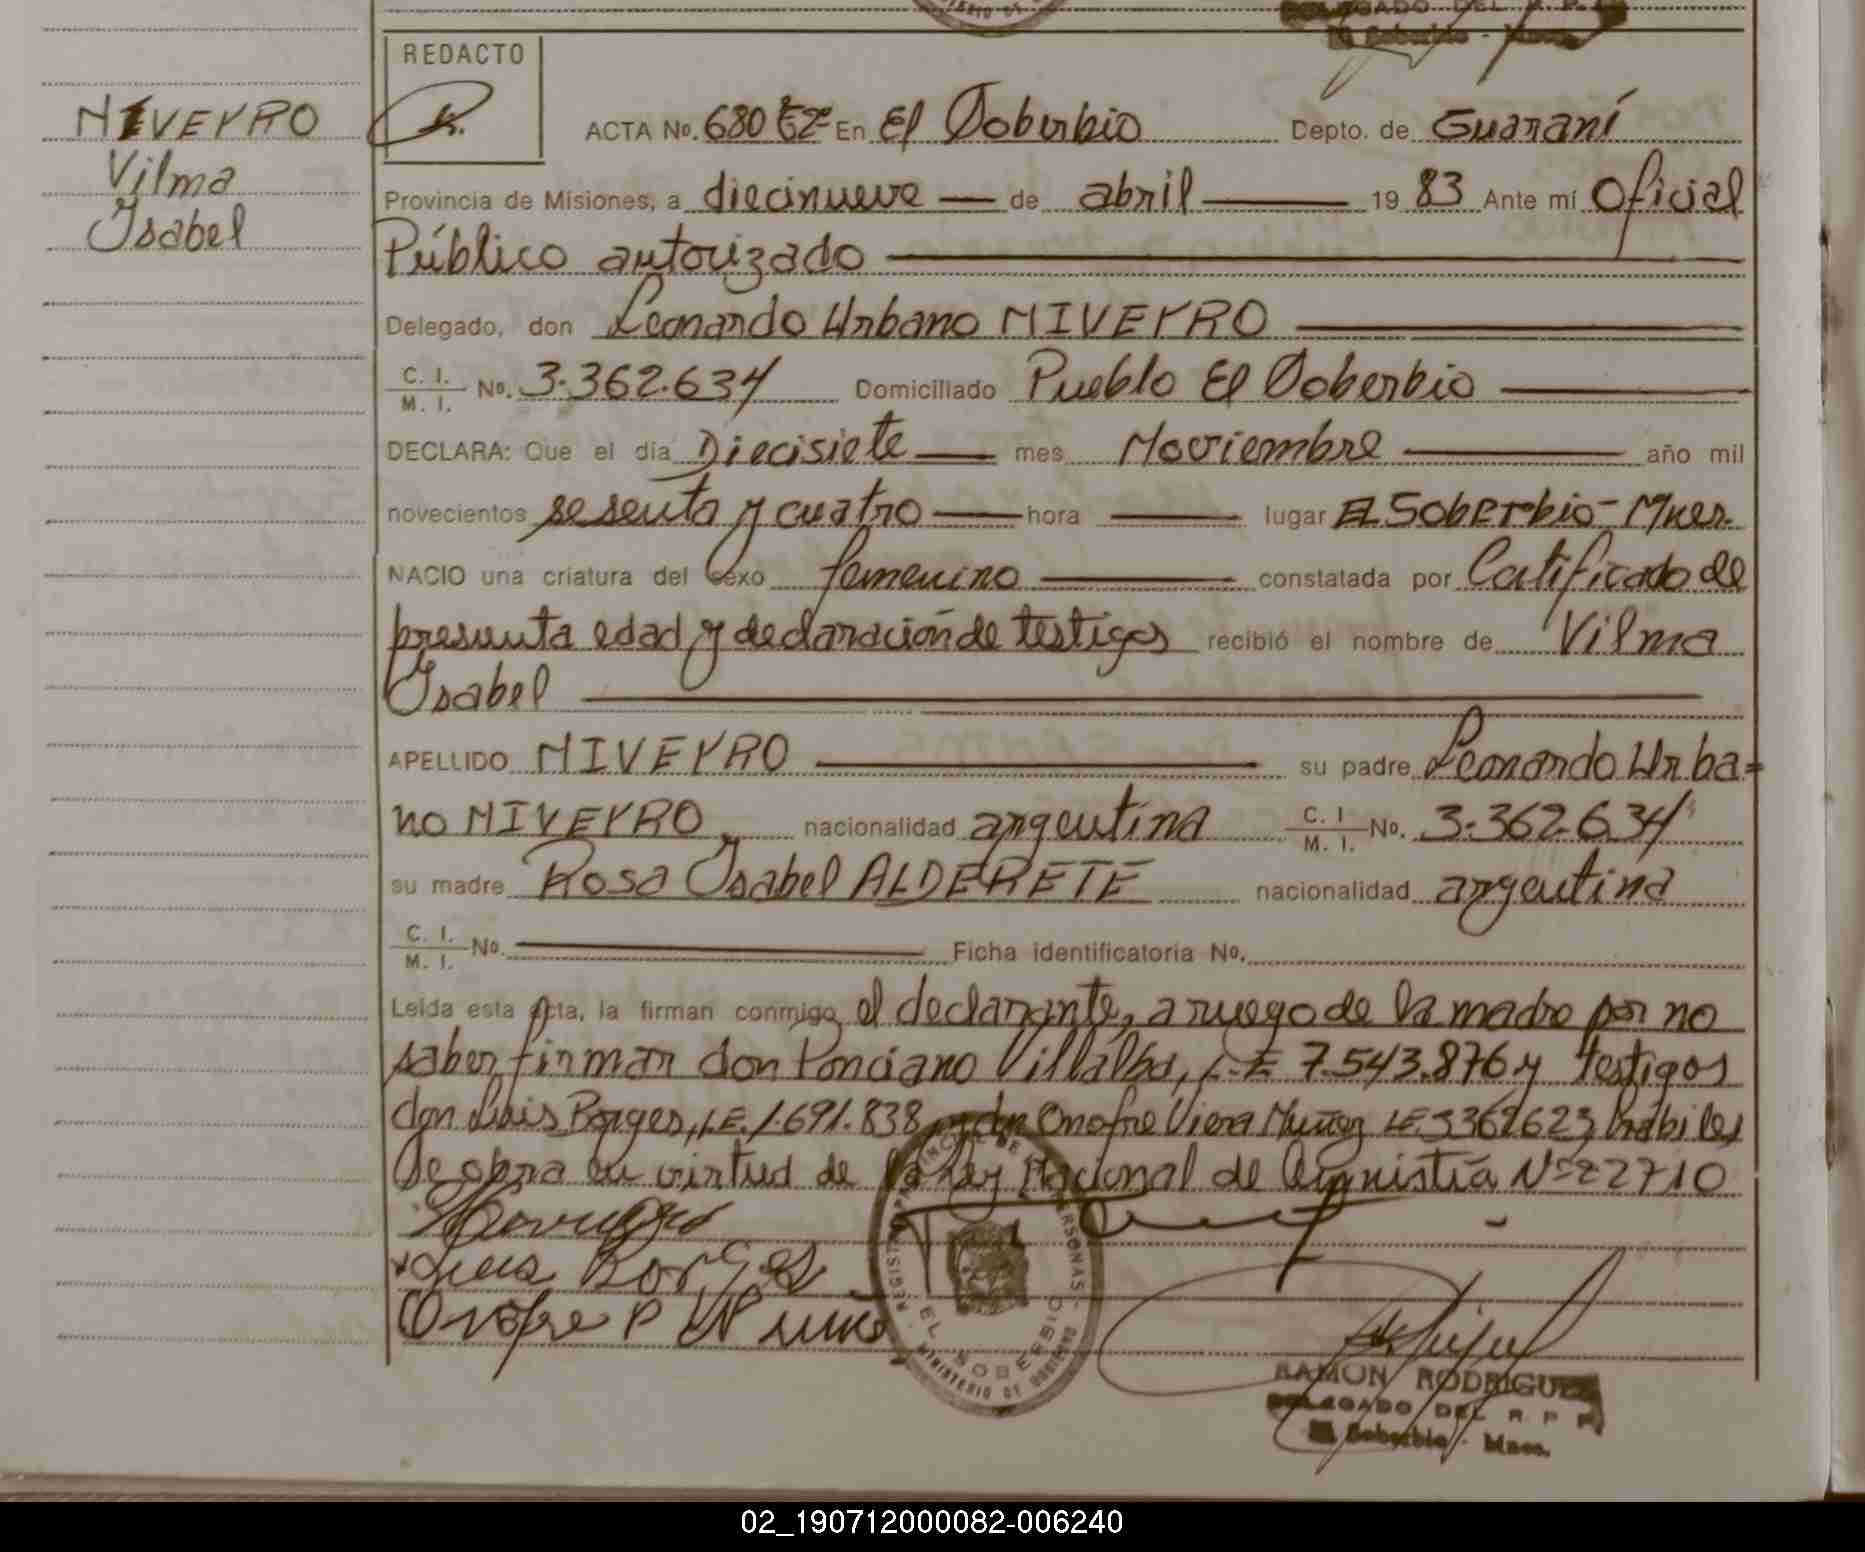 DELEGADO DEL R. P.
El Soberbio - Mnes.
REDACTO
NIVEYRO
Vilma
Isabel
ACTA No. 680 En El Soberbio Depto. de Guaraní
Provincia de Misiones, a diecinueve de abril 19 83 Ante mí Oficial
Público autorizado
Delegado, don Leonardo Urbano NIVEYRO
C. I. M. I. No. 3.362.634 Domiciliado Pueblo El Soberbio
DECLARA: Que el día Diecisiete mes Noviembre año mil
novecientos sesenta y cuatro hora lugar El Soberbio - Mnes.
NACIO una criatura del sexo femenino constatada por Certificado de
presunta edad y declaración de testigos recibió el nombre de Vilma
Isabel
APELLIDO NIVEYRO su padre Leonardo Urba=
no NIVEYRO nacionalidad argentina C. I M. I. No. 3.362.634
su madre Rosa Isabel ALDERETE nacionalidad argentina
C. I. M. I. No. Ficha identificatoria No.
Leída esta acta, la firman conmigo el declarante, a ruego de la madre por no
saber firmar don Ponciano Villalba, L.E 7.543.876 y testigos
don Luis Borges, L.E. 1.691.838 y don Onofre Viera Muñoz LE.3362623, habiles
Se obra en virtud de la Ley Nacional de Amnistía Nº 22710
Luis Borges
Onofre
EL SOBERBIO
MINISTERIO DE GOBIERNO
RAMON RODRIGUEZ
DELEGADO DEL R. P. P.
El Soberbio - Mnes.
02_190712000082-006240